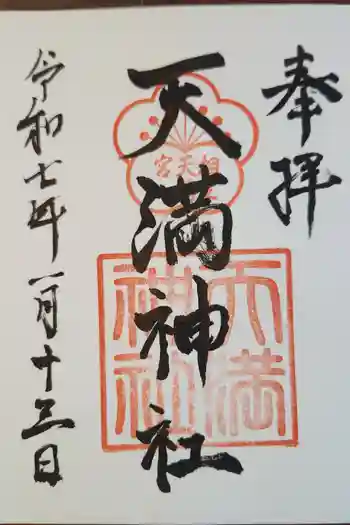 奉拝
天満神社
令和七年一月十三日
天満
神社